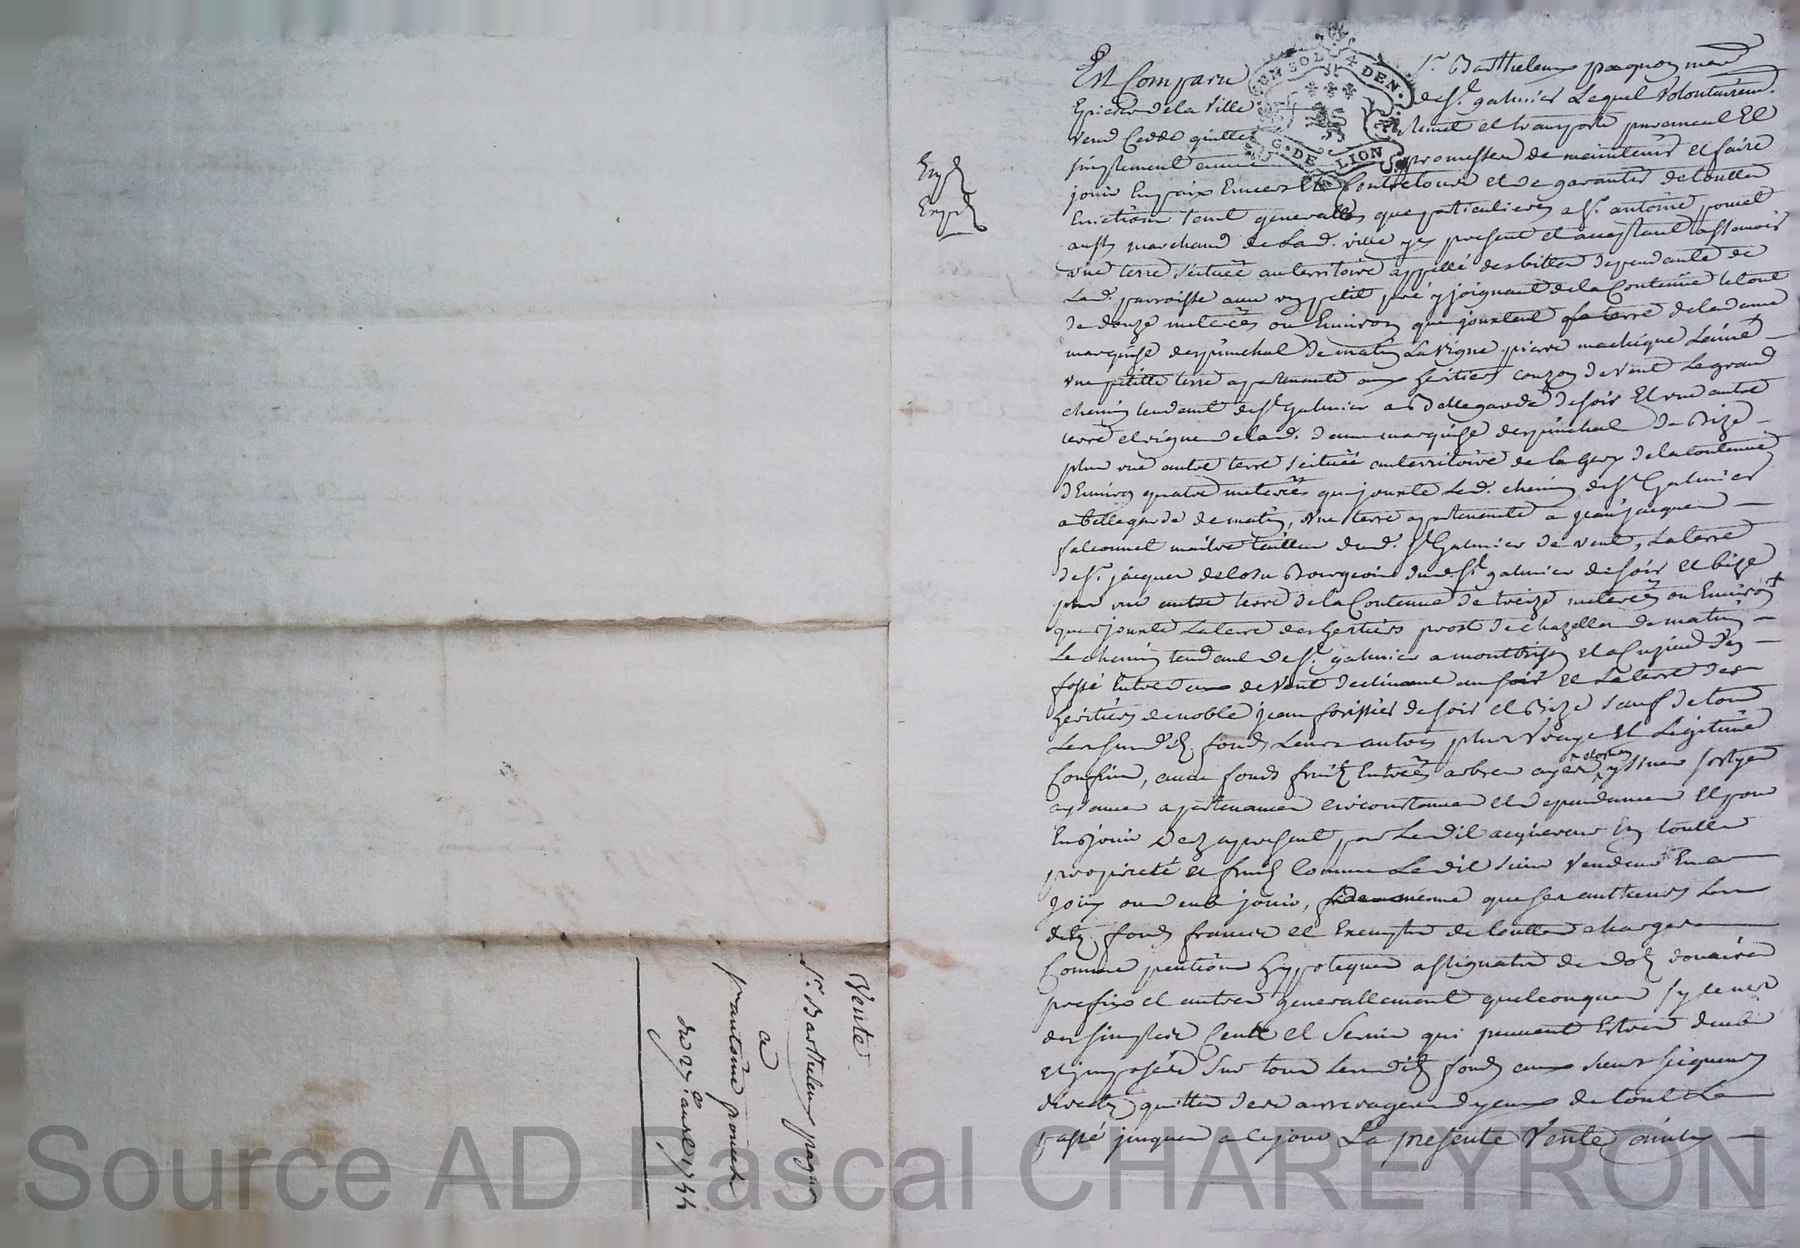 Vente
Sr. Barthelemy paquon
a
sr antoine ponret
du 27e avril 1744
Exp.d
Exp.d
UN SOL 4 DEN.
G. DE LION
Est Comparu Sr. Barthelemy paquon mard
Epicier de la Ville de St galmier Lequel Volontairemt.
Vend Cedde quitte remet et transporte purement Et
simplement avec promesses de maintenir et faire
jouir En paix Envers Et Contre tous et de garantir de touttes
Evictions tant generalles que particulieres a Sr. antoine
aussy marchand de Lad. ville yci present et acceptant assavoir
une terre scituée au territoire appellé des dependante de
Lad. parroisse avec un petit pré y joignant de la Contenüe le tout
de douze meterées ou Environ que jouxtent la terre de la dame
marquise despinchal de matin La Vigne pierre Lainé
une petitte terre apartenante aux heritiers de vent Le grand
chemin tendant de St Galmier a Bellegarde de soir Et une autre
terre et vigne de lad. dame marquise despinchal de Bize
plus une autre terre scituée au territoire de la de la contenüe
d'Environ quatre meterées que jouxte Led. chemin de St Galmier
a bellegarde de matin, une terre apartenante a jean jacques
falconnet maitre dud. St Galmier de vent, La terre
de Sr. jacques Bourgeois dud. St. galmier de soir et bize
plus une autre terre de la Contenue de treize meterées ou Environ
que jouxte La terre des heritiers prost de chazelles de matin
Le chemin tendant de St. galmier a montbrison et
fossé Entre deux de Vent declinant au soir et La terre des
heritiers de noble jean forissier de soir et Bize sauf de tous
Les susd. fonds Leurs autres plus Vrays Et Legitimes
Confins, avec fonds fruits Entrées arbres ysSues sortyes
aysances apartenances circonstances et dependances Et pour
En jouir Dez apresent par Ledit acquereur En toutte
proprieté et fruits comme Ledit sieur Vendeur En a
joüy ou deub jouir, de meme que ses autheurs Les
dits fonds francs et Exempts de touttes charges
Comme pentions hypoteques assignats de dots douaires
prefix et autres generallement quelconques sy ce nest
du simple Cens et Servis qui peuvent Estre deubs
et imposés Sur tous Lesdits fonds aux sieurs seigneurs
directs quittes des arrerages dyceux de tout Le
passé jusques a ce jour La presente Vente ainsy
Source AD Pascal CHAREYRON